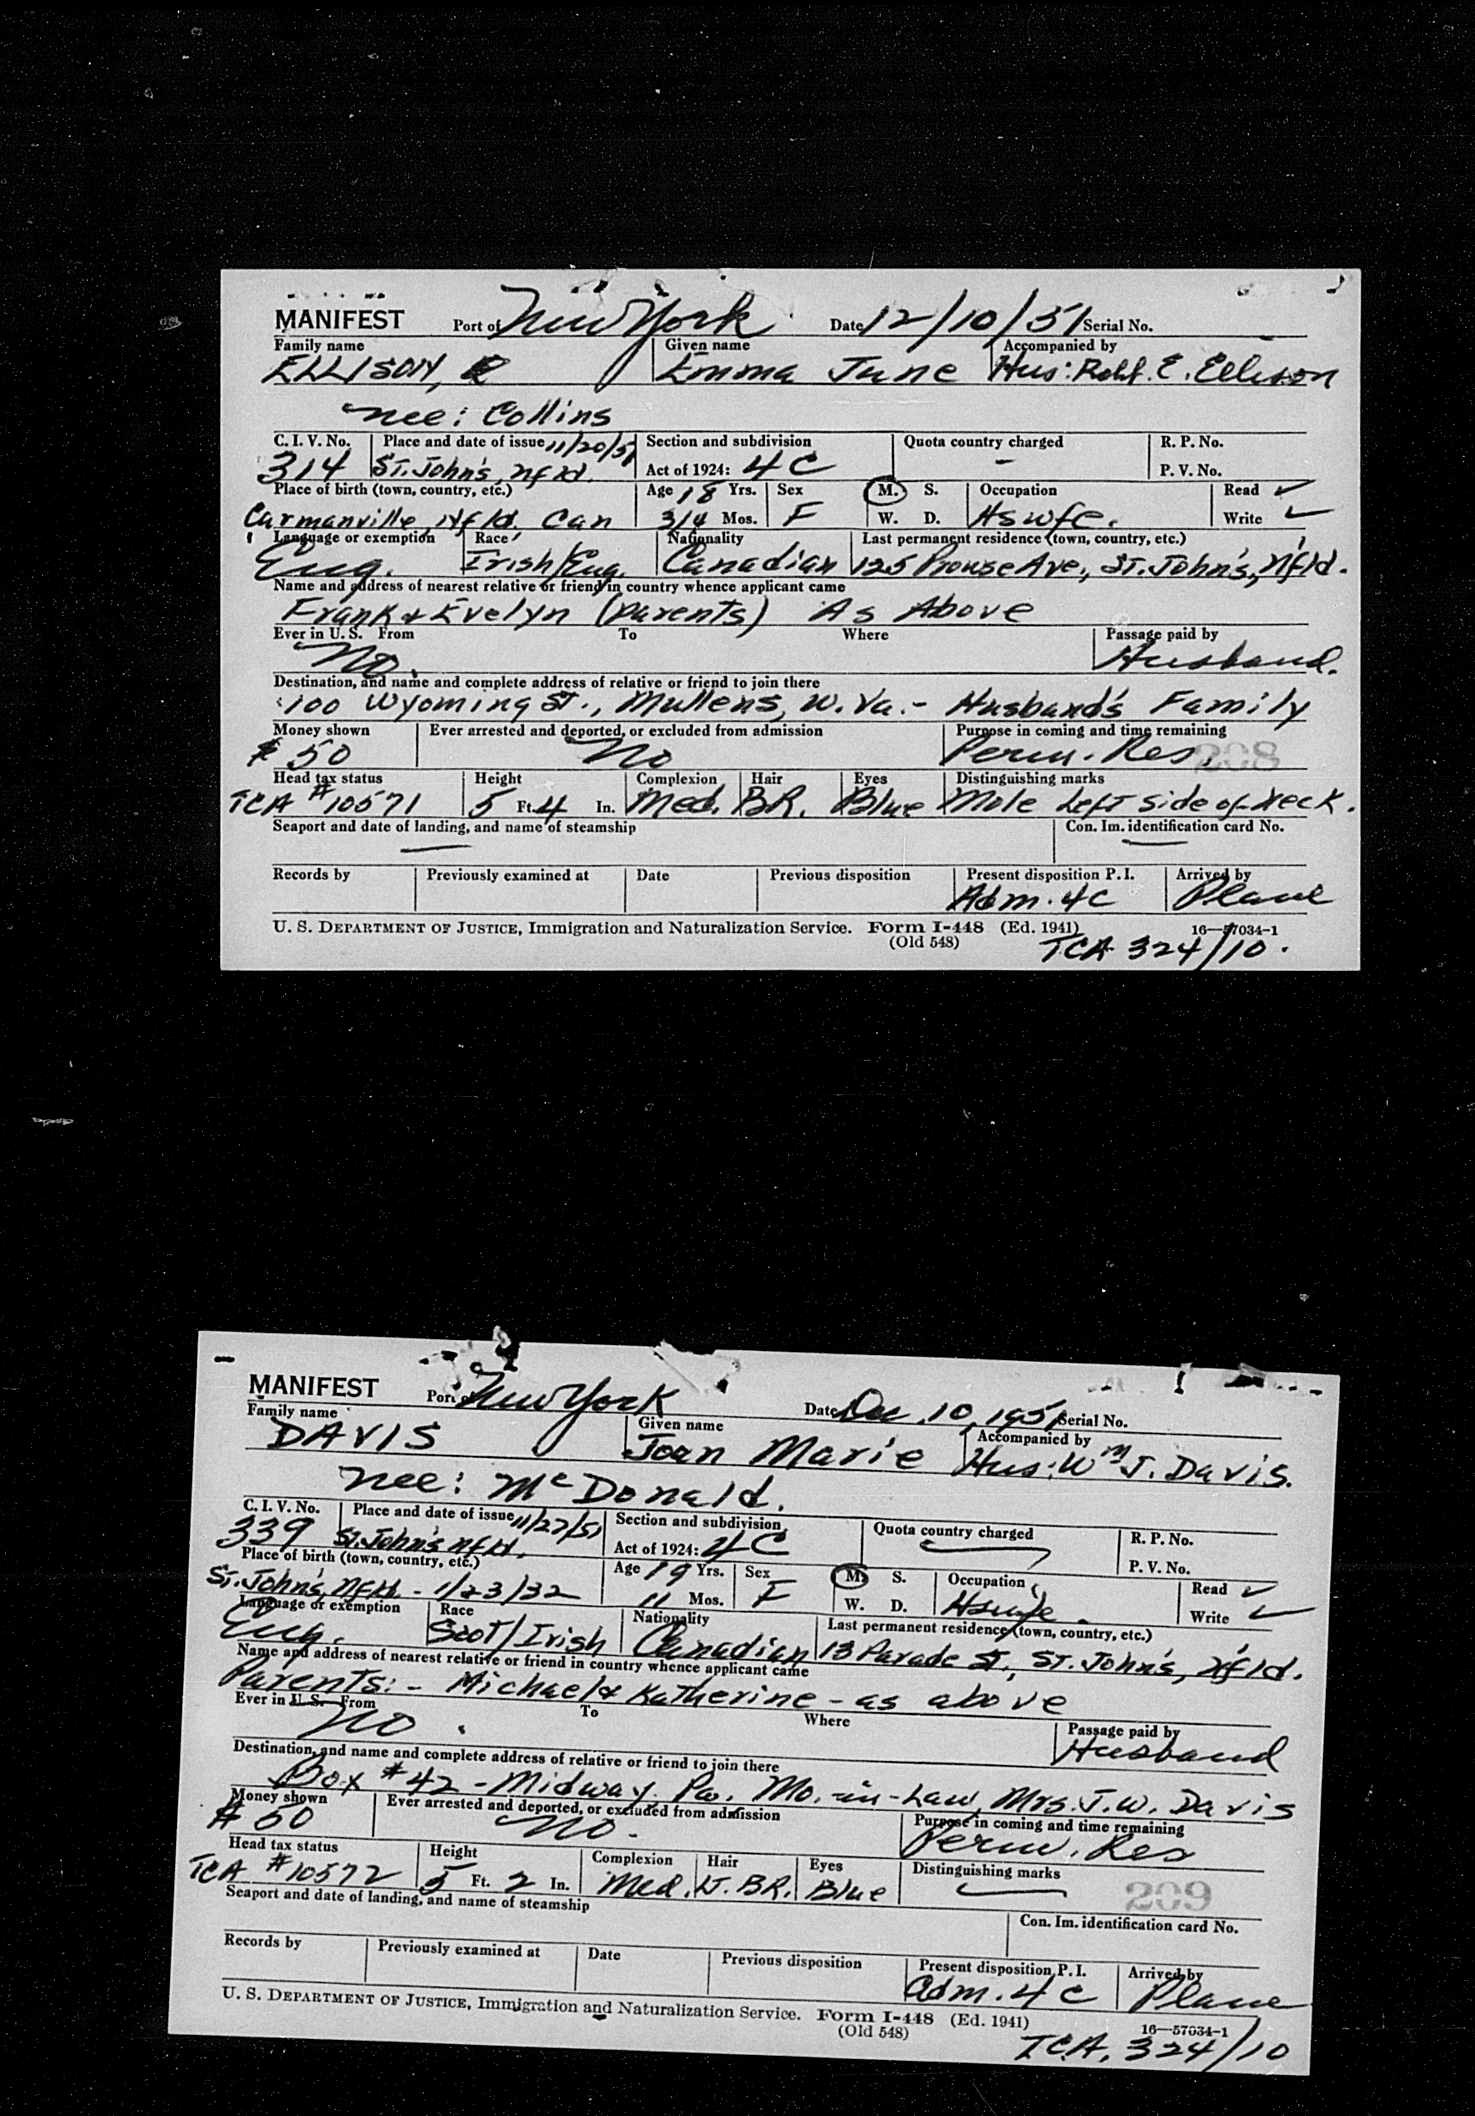 MANIFEST Port of New York Date 12/10/51 Serial No.
Family name Given name Accompanied by
ELLISON, Emma June Hus: Robt. E. Ellison
nee: Collins
C. I. V. No. Place and date of issue 11/20/51 Section and subdivision Quota country charged R. P. No.
314 St. John's, Nfld. Act of 1924: 4C - P. V. No.
Place of birth (town, country, etc.) Age 18 Yrs. Sex M. S. Occupation Read ✓
Carmanville, Nfld. Can 3/4 Mos. F W. D. Hswfe. Write ✓
Language or exemption Race Nationality Last permanent residence (town, country, etc.)
Eng. Irish/Eng. Canadian 125 Prowse Ave., St. John's, Nfld.
Name and address of nearest relative or friend in country whence applicant came
Frank & Evelyn (parents) As Above
Ever in U. S. From To Where Passage paid by
No. Husband.
Destination, and name and complete address of relative or friend to join there
100 Wyoming St., Mullens, W. Va. - Husband's Family
Money shown Ever arrested and deported, or excluded from admission Purpose in coming and time remaining
$50 No Perm. Res. 208
Head tax status Height Complexion Hair Eyes Distinguishing marks
TCA #10571 5 Ft. 4 In. Med. BR. Blue Mole Left side of Neck.
Seaport and date of landing, and name of steamship Con. Im. identification card No.
Records by Previously examined at Date Previous disposition Present disposition P. I. Arrived by
Adm. 4C Plane
U. S. DEPARTMENT OF JUSTICE, Immigration and Naturalization Service. Form I-448 (Ed. 1941) 16—57034-1
(Old 548) TCA 324/10.
MANIFEST Port of New York Date Dec. 10, 1951 Serial No.
Family name Given name Accompanied by
DAVIS Joan Marie Hus: Wm J. Davis.
nee: McDonald.
C. I. V. No. Place and date of issue 11/27/51 Section and subdivision Quota country charged R. P. No.
339 St. John's Nfld. Act of 1924: 4C P. V. No.
Place of birth (town, country, etc.) Age 19 Yrs. Sex M. S. Occupation Read ✓
St. John's, Nfld. - 1/23/32 11 Mos. F W. D. Hswfe. Write ✓
Language or exemption Race Nationality Last permanent residence (town, country, etc.)
Eng. Scot/Irish Canadian 13 Parade St., St. John's, Nfld.
Name and address of nearest relative or friend in country whence applicant came
Parents: - Michael & Katherine - as above
Ever in U. S. From To Where Passage paid by
No. Husband
Destination, and name and complete address of relative or friend to join there
Box #42 - Midway, Pa. Mo.-in-Law Mrs. J. W. Davis
Money shown Ever arrested and deported, or excluded from admission Purpose in coming and time remaining
$50 No. Perm. Res
Head tax status Height Complexion Hair Eyes Distinguishing marks
TCA #10572 5 Ft. 2 In. Med. Lt. BR. Blue 209
Seaport and date of landing, and name of steamship Con. Im. identification card No.
Records by Previously examined at Date Previous disposition Present disposition P. I. Arrived by
Adm. 4C Plane
U. S. DEPARTMENT OF JUSTICE, Immigration and Naturalization Service. Form I-448 (Ed. 1941) 16—57034-1
(Old 548) TCA. 324/10